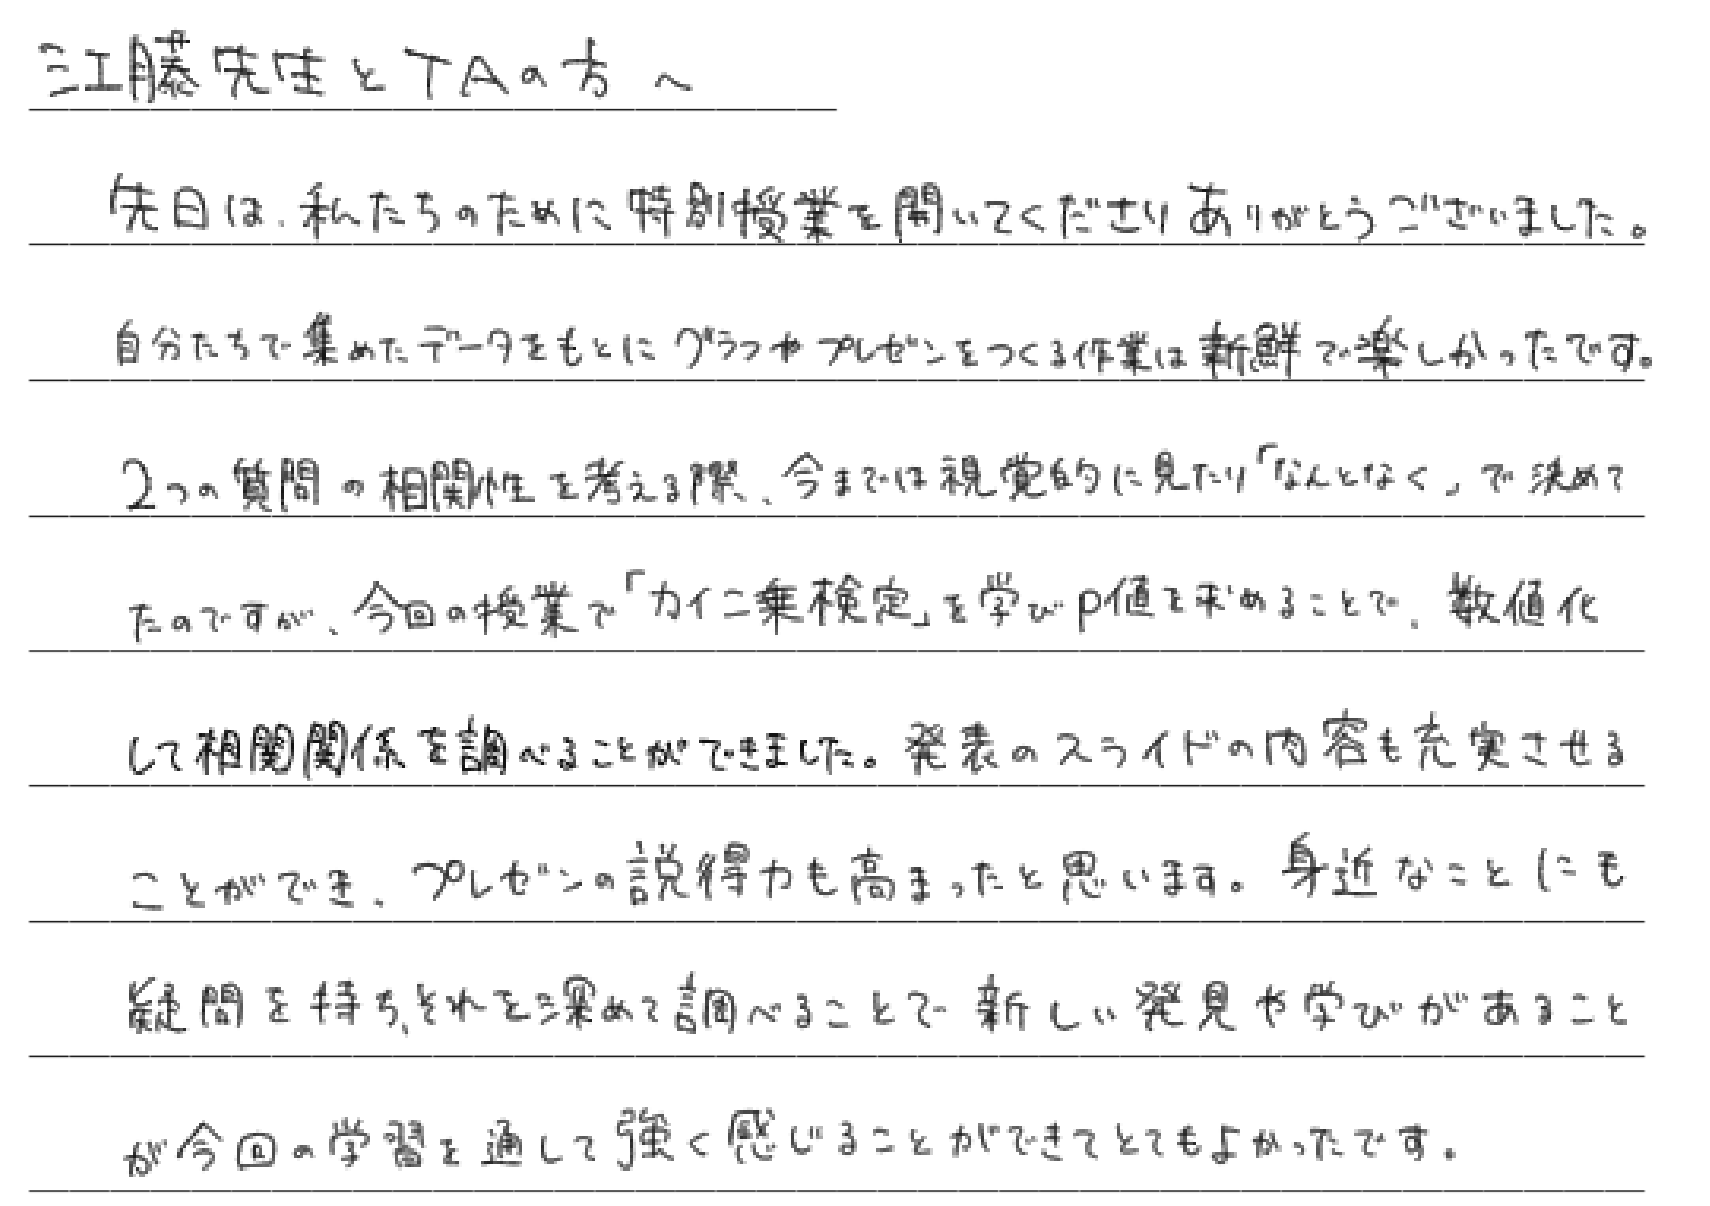 江藤先生とTAの方へ
先日は、私たちのために特別授業を開いてくださりありがとうございました。
自分たちで集めたデータをもとにグラフやプレゼンをつくる作業は新鮮で楽しかったです。
2つの質問の相関性を考える際、今までは視覚的に見たり「なんとなく」で決めて
たのですが、今回の授業で「カイ二乗検定」を学びp値を求めることで、数値化
して相関関係を調べることができました。発表のスライドの内容も充実させる
ことができ、プレゼンの説得力も高まったと思います。身近なことにも
疑問を持ち、それを深めて調べることで新しい発見や学びがあること
が今回の学習を通して強く感じることができてとてもよかったです。